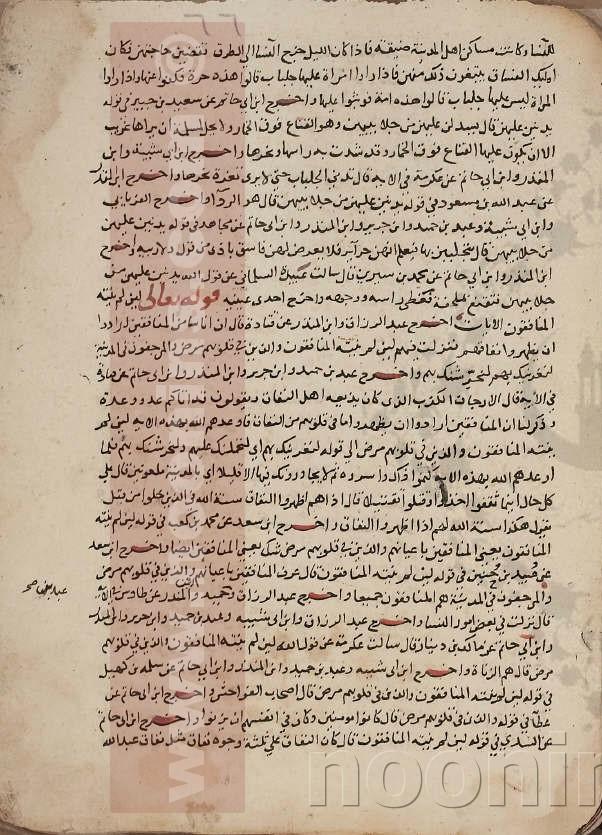 للنساء وكانت مساكن اهل المدينة ضيقة فاذا كان الليل خرج النساء الى الطرق يقضين حاجتهن فكان
اولئك الفساق يتبعون ذلك منهن فاذا راوا امراة عليها جلباب قالوا هذه حرة فكفوا عنها واذا راوا
المراة ليس عليها جلباب قالوا هذه امة فوثبوا عليها واخرج ابن ابى حاتم عن سعيد بن جبير فى قوله
يدنين عليهن قال يسدلن عليهن من جلابيبهن وهو القناع فوق الخمار ولا يحل لمسلمة ان يراها غريب
الا ان يكون عليها القناع فوق الخمار وقد شدت به راسها ونحرها واخرج ابن ابى شيبة وابن
المنذر وابن ابى حاتم عن عكرمة فى الاية قال تدنى الجلباب حتى لا يرى ثغرة نحرها واخرج ابن المنذر
عن عبد الله بن مسعود فى قوله يدنين عليهن من جلابيبهن قال هو الردا واخرج الفريابى
وابن ابى شيبة وعبد بن حميد وابن جرير وابن المنذر وابن ابى حاتم عن مجاهد فى قوله يدنين عليهن
من جلابيبهن قال يتجلببن بها فيعلم انهن حراير فلا يعرض لهن فاسق باذى من قول ولا ريبة واخرج
ابن المنذر وابن ابى حاتم عن محمد بن سيرين قال سالت عبيدة السلمانى عن قول الله يدنين عليهن من
جلابيبهن فتقنع بملحفة فغطى راسه ووجهه واخرج احدى عينيه قوله تعالى لين لم ينته
المنافقون الايات اخرج عبد الرزاق وابن المنذر عن قتادة قال ان اناسا من المنافقين ارادوا
ان يظهروا نفاقهم فنزلت فيهم لين لم ينته المنافقون والذين فى قلوبهم مرض والمرجفون فى المدينة
لنغرينك بهم لنحرشنك بهم واخرج عبد بن حميد وابن جرير وابن المنذر وابن ابى حاتم عن قتادة
فى الاية قال الارجاف الكذب الذى كان يذيعه اهل النفاق ويقولون قد اتاكم عدد وعدة
وذكر لنا ان المنافقين ارادوا ان يظهروا ما فى قلوبهم من النفاق فاوعدهم الله بهذه الاية لين لم
ينته المنافقون والذين فى قلوبهم مرض الى قوله لنغرينك بهم اى لنحملنك عليهم ولنحرشنك بهم فلما
اوعدهم الله بهذه الاية كتموا ذلك واسروه ثم لا يجاورونك فيها الا قليلا اى بالمدينة ملعونين قال على
كل حال اينما ثقفوا اخذوا وقتلوا تقتيلا قال اذا هم اظهروا النفاق سنة الله فى الذين خلوا من قبل
يقول هكذا سنة الله فيهم اذا اظهروا النفاق واخرج ابن سعد عن محمد بن كعب فى قوله لين لم ينته
المنافقون يعنى المنافقين باعيانهم والذين فى قلوبهم مرض شك يعنى المنافقين ايضا واخرج ابن سعد
عن عبيد بن حنين فى قوله لين لم ينته المنافقون قال عرف المنافقين باعيانهم والذين فى قلوبهم مرض
والمرجفون فى المدينة هم المنافقون جميعا واخرج عبد الرزاق وابن المنذر عن طاوس فى الاية
قال نزلت فى بعض امور النساء واخرج عبد الرزاق وابن ابى شيبه وعبد بن حميد وابن جرير وابن المنذر
وابن ابى حاتم عن مالك بن دينار قال سالت عكرمة عن قول الله لين لم ينته المنافقون والذين فى قلوبهم
مرض قال هم الزناة واخرج ابن ابى شيبه وعبد بن حميد وابن المنذر وابن ابى حاتم عن سلمه بن كهيل
فى قوله لين لم ينته المنافقون والذين فى قلوبهم مرض قال اصحاب الفواحش واخرج ابن ابى حاتم عن
عطا فى قوله والذين فى قلوبهم مرض قال كانوا مومنين وكان فى انفسهم ان يزنوا واخرج ابن ابى حاتم
عن السدى فى قوله لين لم ينته المنافقون قال كان النفاق على ثلثة وجوه نفاق مثل نفاق عبد الله
noonin